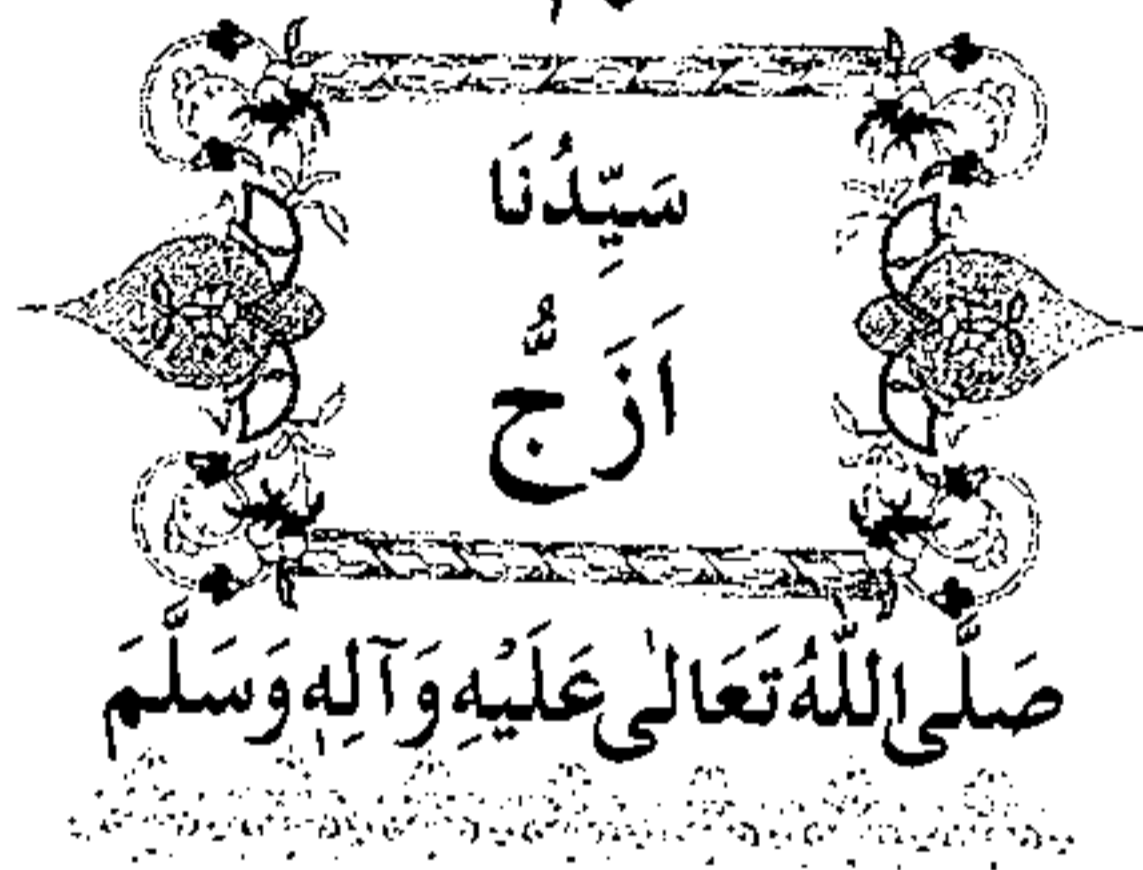 سَیِّدُنَا
اَزَجُّ
صَلَّی اللّٰهُ تَعَالٰی عَلَیْهِ وَآلِهٖ وَسَلَّمَ